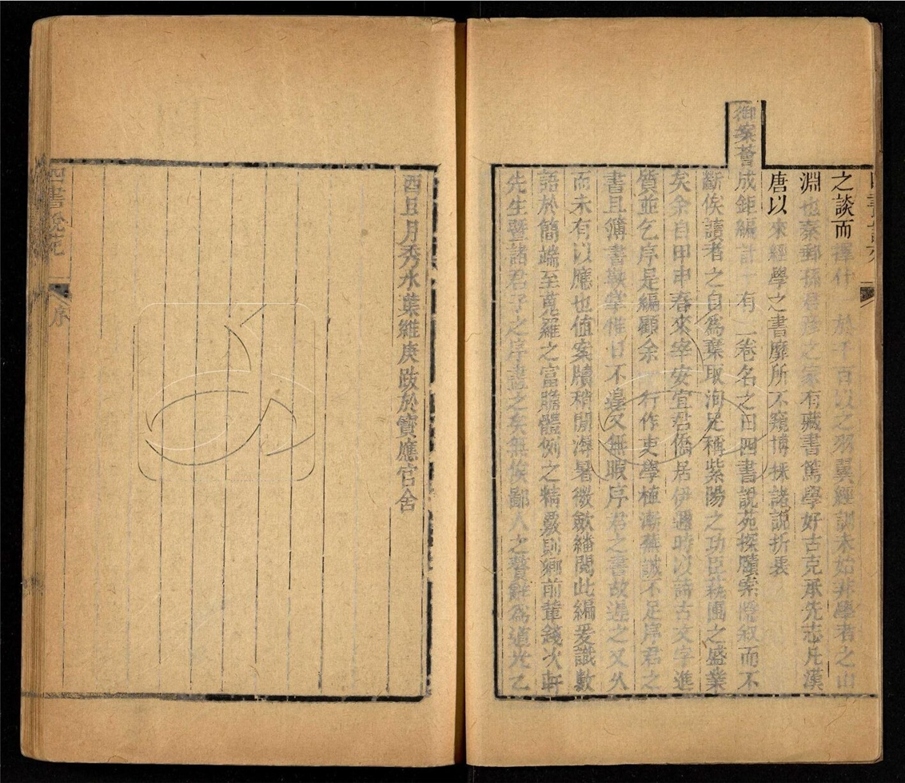 之談而擇什於千百以之羽翼經訓未始非學者之山
淵也秦郵孫君彥之家有藏書篤學好古克承先志凡漢
唐以來經學之書靡所不窺博採諸說折衷
御案薈成鉅編計十有二卷名之曰四書說苑探賾索隱叙而不
斷俟讀者之自為棄取洵足稱紫陽之功臣萟圃之盛業
矣余自甲申春來宰安宜君僑居伊邇時以詩古文字進
質並乞序是編顧余一行作吏學植漸蕪誠不足序君之
書且簿書鞅掌惟日不遑又無暇序君之書故遲之又久
而未有以應也值案牘稍閒溽暑微斂繙閱此編爰識數
語於簡端至蒐羅之富贍體例之精嚴則鄉前輩錢次軒
先生暨諸君子之序盡之矣無俟鄙人之贅辭為道光乙
酉且月秀水葉維庚跋於寶應官舍
四書說苑
序